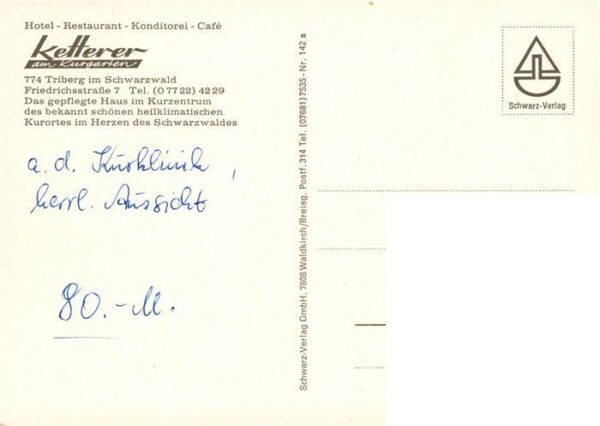 Hotel - Restaurant - Konditorei - Café
Ketterer
am Kurgarten
774 Triberg im Schwarzwald
Friedrichsstraße 7 Tel. (0 77 22) 42 29
Das gepflegte Haus im Kurzentrum
des bekannt schönen heilklimatischen
Kurortes im Herzen des Schwarzwaldes
a. d. Kurklinik,
herrl. Aussicht
80.-M.
Schwarz-Verlag GmbH, 7808 Waldkirch/Breisg. Postf. 314 Tel. (07681) 7535 - Nr. 142 a
Schwarz-Verlag